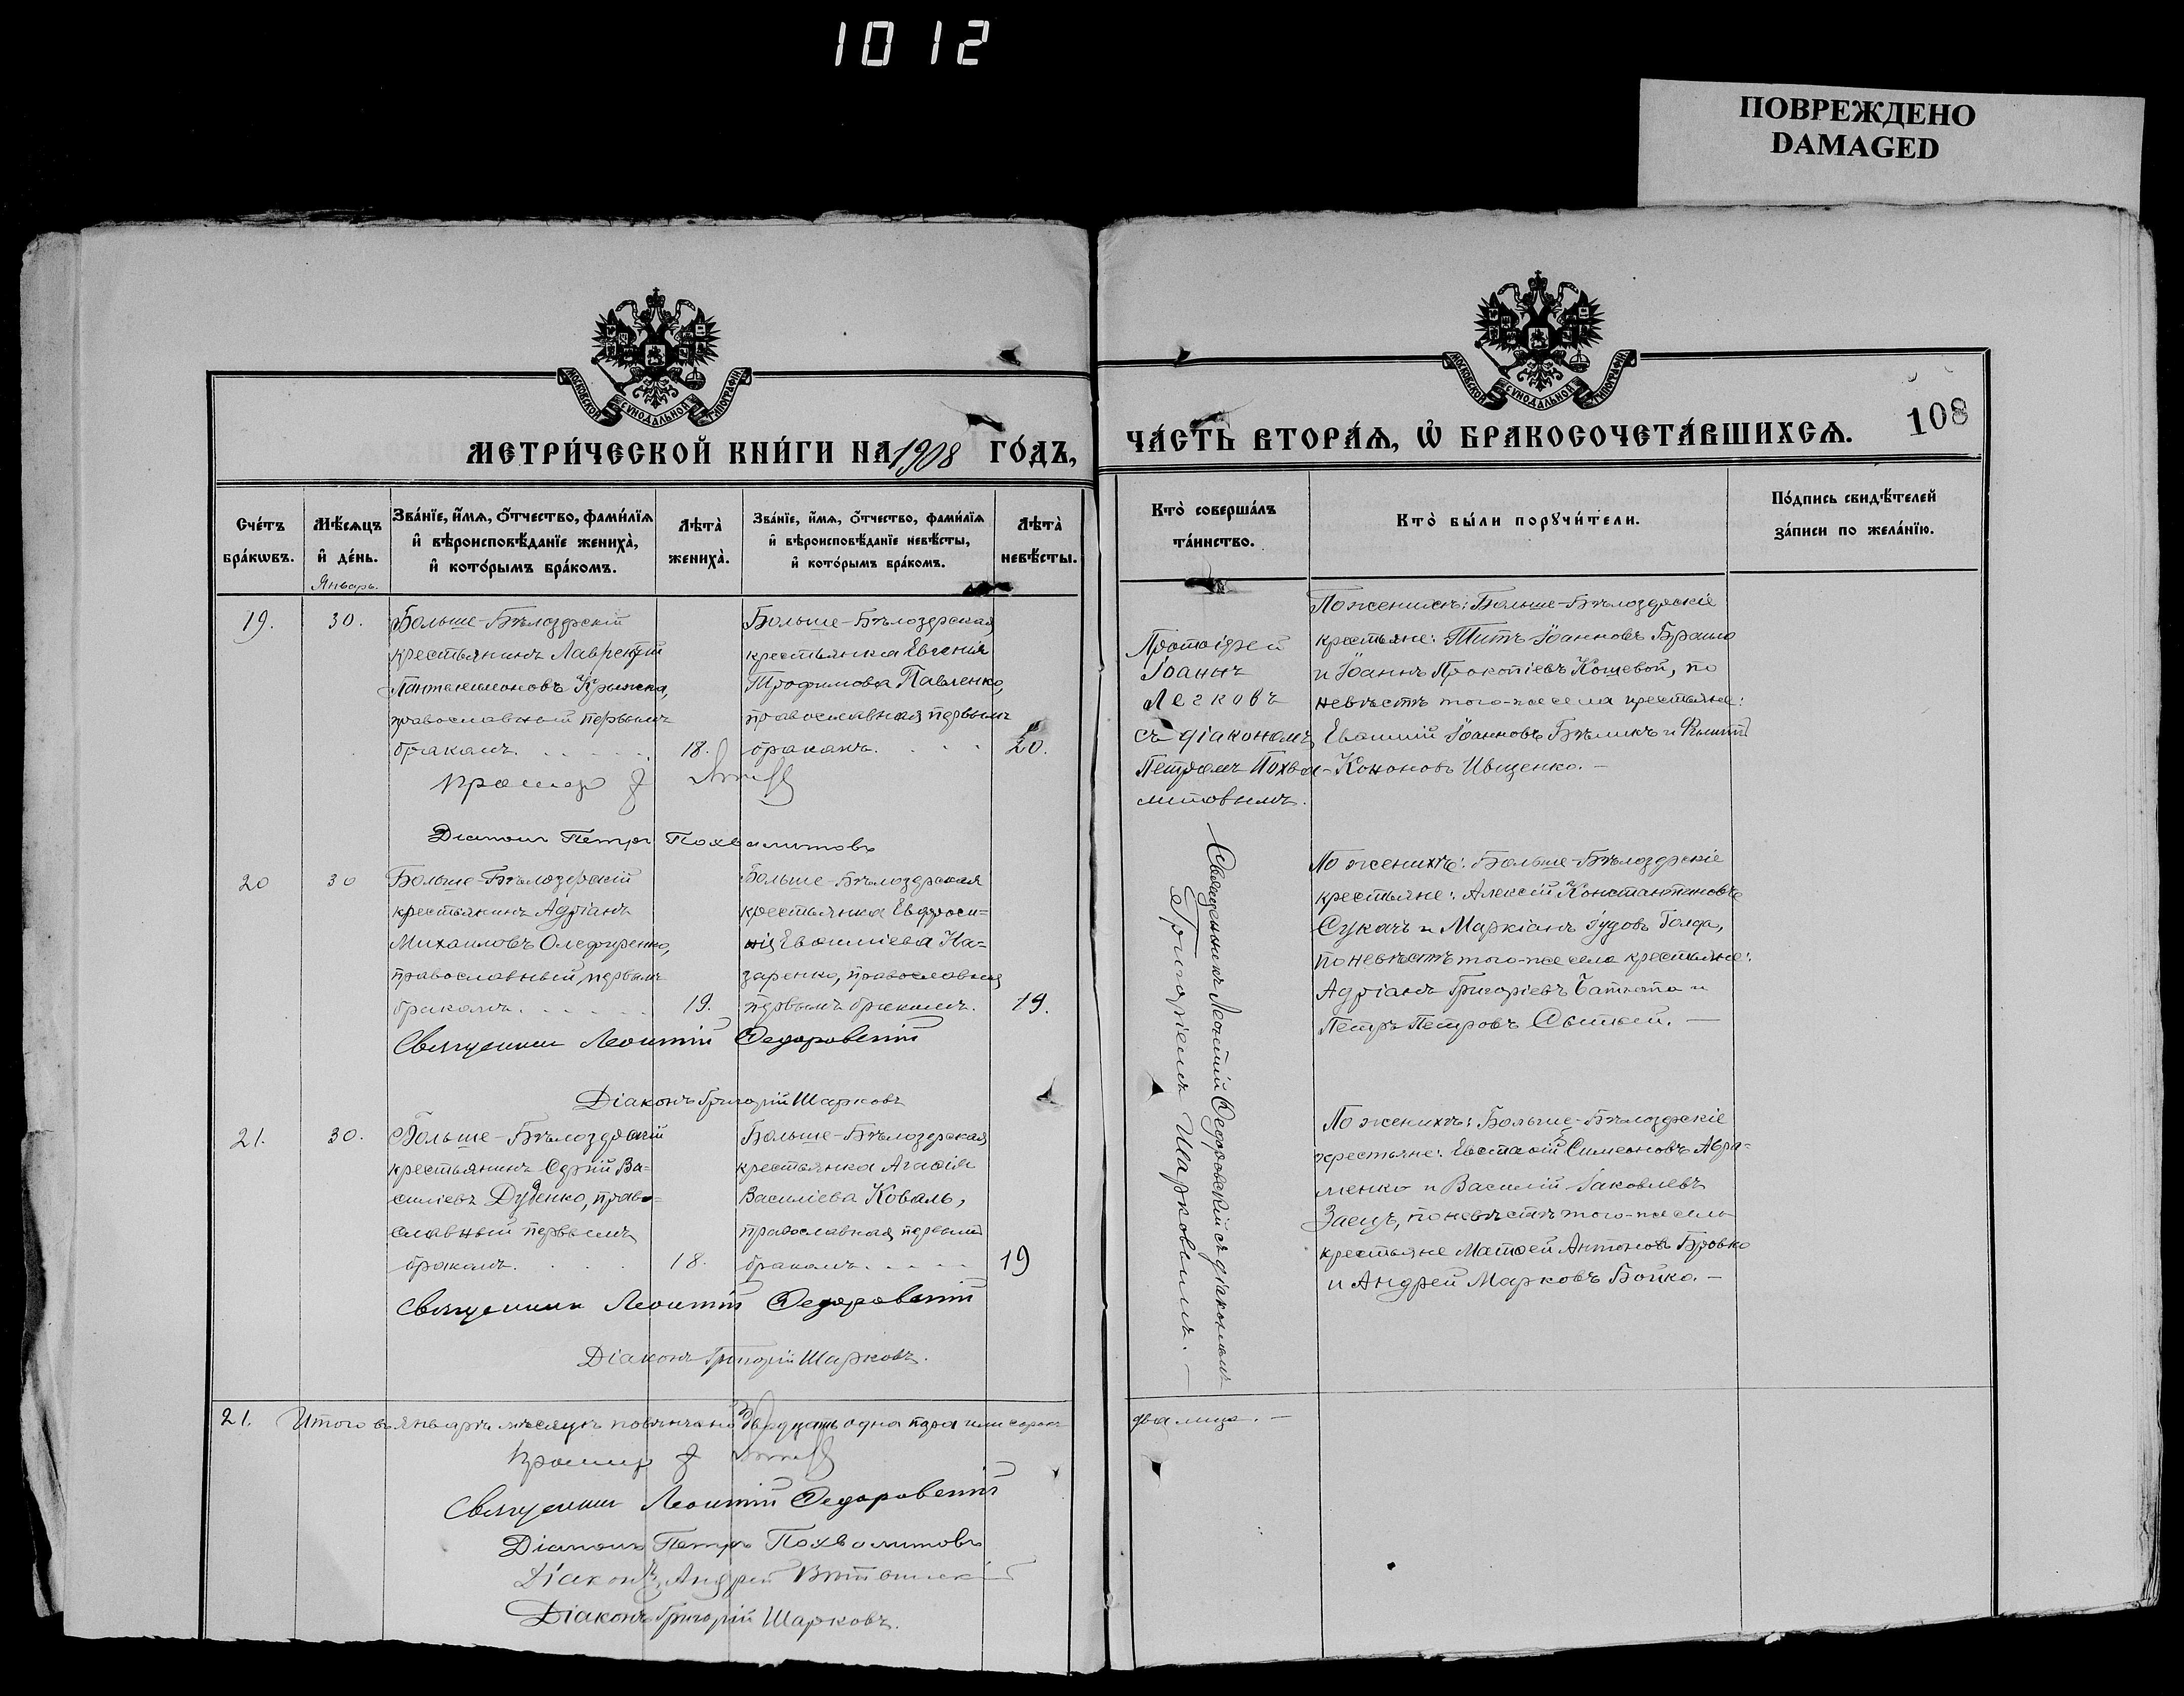 1012
ПОВРЕЖДЕНО
DAMAGED
МОСКОВСКОЙ СУНОДАЛЬНОЙ ТИПОГРАФІИ
МОСКОВСКОЙ СУНОДАЛЬНОЙ ТИПОГРАФІИ
МЕТРИ́ЧЕСКОЙ КНИ́ГИ НА 1908 ГО́ДЪ,
ЧА́СТЬ ВТОРА́Ѧ, Ѽ БРАКОСОЧЕТА́ВШИХСѦ.
108
Сче́тъ
бра́кѡвъ.
Мѣ́сѧцъ
и҆ де́нь.
Январь.
Зва́нїе, и҆́мѧ, ѻ҆́тчество, фами́лїѧ
и҆ вѣроисповѣ́данїе женихà,
и҆ кото́рымъ бра́комъ.
Лѣта̀
женихà.
Зва́нїе, и҆́мѧ, ѻ҆́тчество, фами́лїѧ
и҆ вѣроисповѣ́данїе невѣ́сты,
и҆ кото́рымъ бра́комъ.
Лѣта̀
невѣ́сты.
Кто̀ соверша́лъ
та́инство.
Кто̀ бы́ли порꙋчи́тели.
По́дпись свидѣ́телей
за́писи по жела́нїю.
19.
30.
Больше-Бѣлозерскій
крестьянинъ Лаврентій
Пантелимоновъ Крышка,
православный первымъ
бракомъ.
18.
Больше-Бѣлозерская
крестьянка Евгенія
Трофимова Павленко,
православная первымъ
бракомъ.
20.
Протоіерей
Іоаннъ
Легковъ
съ діакономъ
Петромъ Похва-
литовымъ.
По женихѣ: Больше-Бѣлозерскіе
крестьяне: Титъ Іоанновъ Брашко
и Іоаннъ Прокопіевъ Кошевой, по
невѣстѣ того-же села крестьяне:
Евѳимій Іоанновъ Бѣликъ и Филиппъ
Кононовъ Ивщенко.
Діаконъ Петръ Похвалитовъ
20
30
Больше-Бѣлозерскій
крестьянинъ Адріанъ
Михаиловъ Олефиренко,
православный, первымъ
бракомъ.
19.
Больше-Бѣлозерская
крестьянка Евфроси-
нія Евѳиміева На-
заренко, православная
первымъ бракомъ.
19.
Священникъ Леонтій Ѳедоровскій съ діакономъ
Григоріемъ Шарковымъ.
По женихѣ: Больше-Бѣлозерскіе
крестьяне: Алексій Константиновъ
Сукачъ и Маркіанъ Іудовъ Голда,
по невѣстѣ того-же села крестьяне:
Адріанъ Григоріевъ
Петръ Петровъ
Священникъ Леонтій Ѳедоровскій
Діаконъ Григорій Шарковъ
21.
30.
Больше-Бѣлозерскій
крестьянинъ Сергій Ва-
силіевъ Дуденко, право-
славный первымъ
бракомъ.
18.
Больше-Бѣлозерская
крестьянка Агаѳія
Василіева Коваль,
православная первымъ
бракомъ.
19
По женихѣ: Больше-Бѣлозерскіе
крестьяне: Евстаѳій Симеоновъ Авра-
менко и Василій Іаковлевъ
Заецъ, по невѣстѣ того-же села
крестьяне Матѳей Антоновъ Бровко
и Андрей Марковъ Бойко.
Священникъ Леонтій Ѳедоровскій
Діаконъ Григорій Шарковъ.
21. Итого въ Январѣ мѣсяцѣ повѣнчано двадцать одна пара или сорокъ
два лица.
Священникъ Леонтій Ѳедоровскій
Діаконъ Петръ Похвалитовъ
Діаконъ Андрей
Діаконъ Григорій Шарковъ.